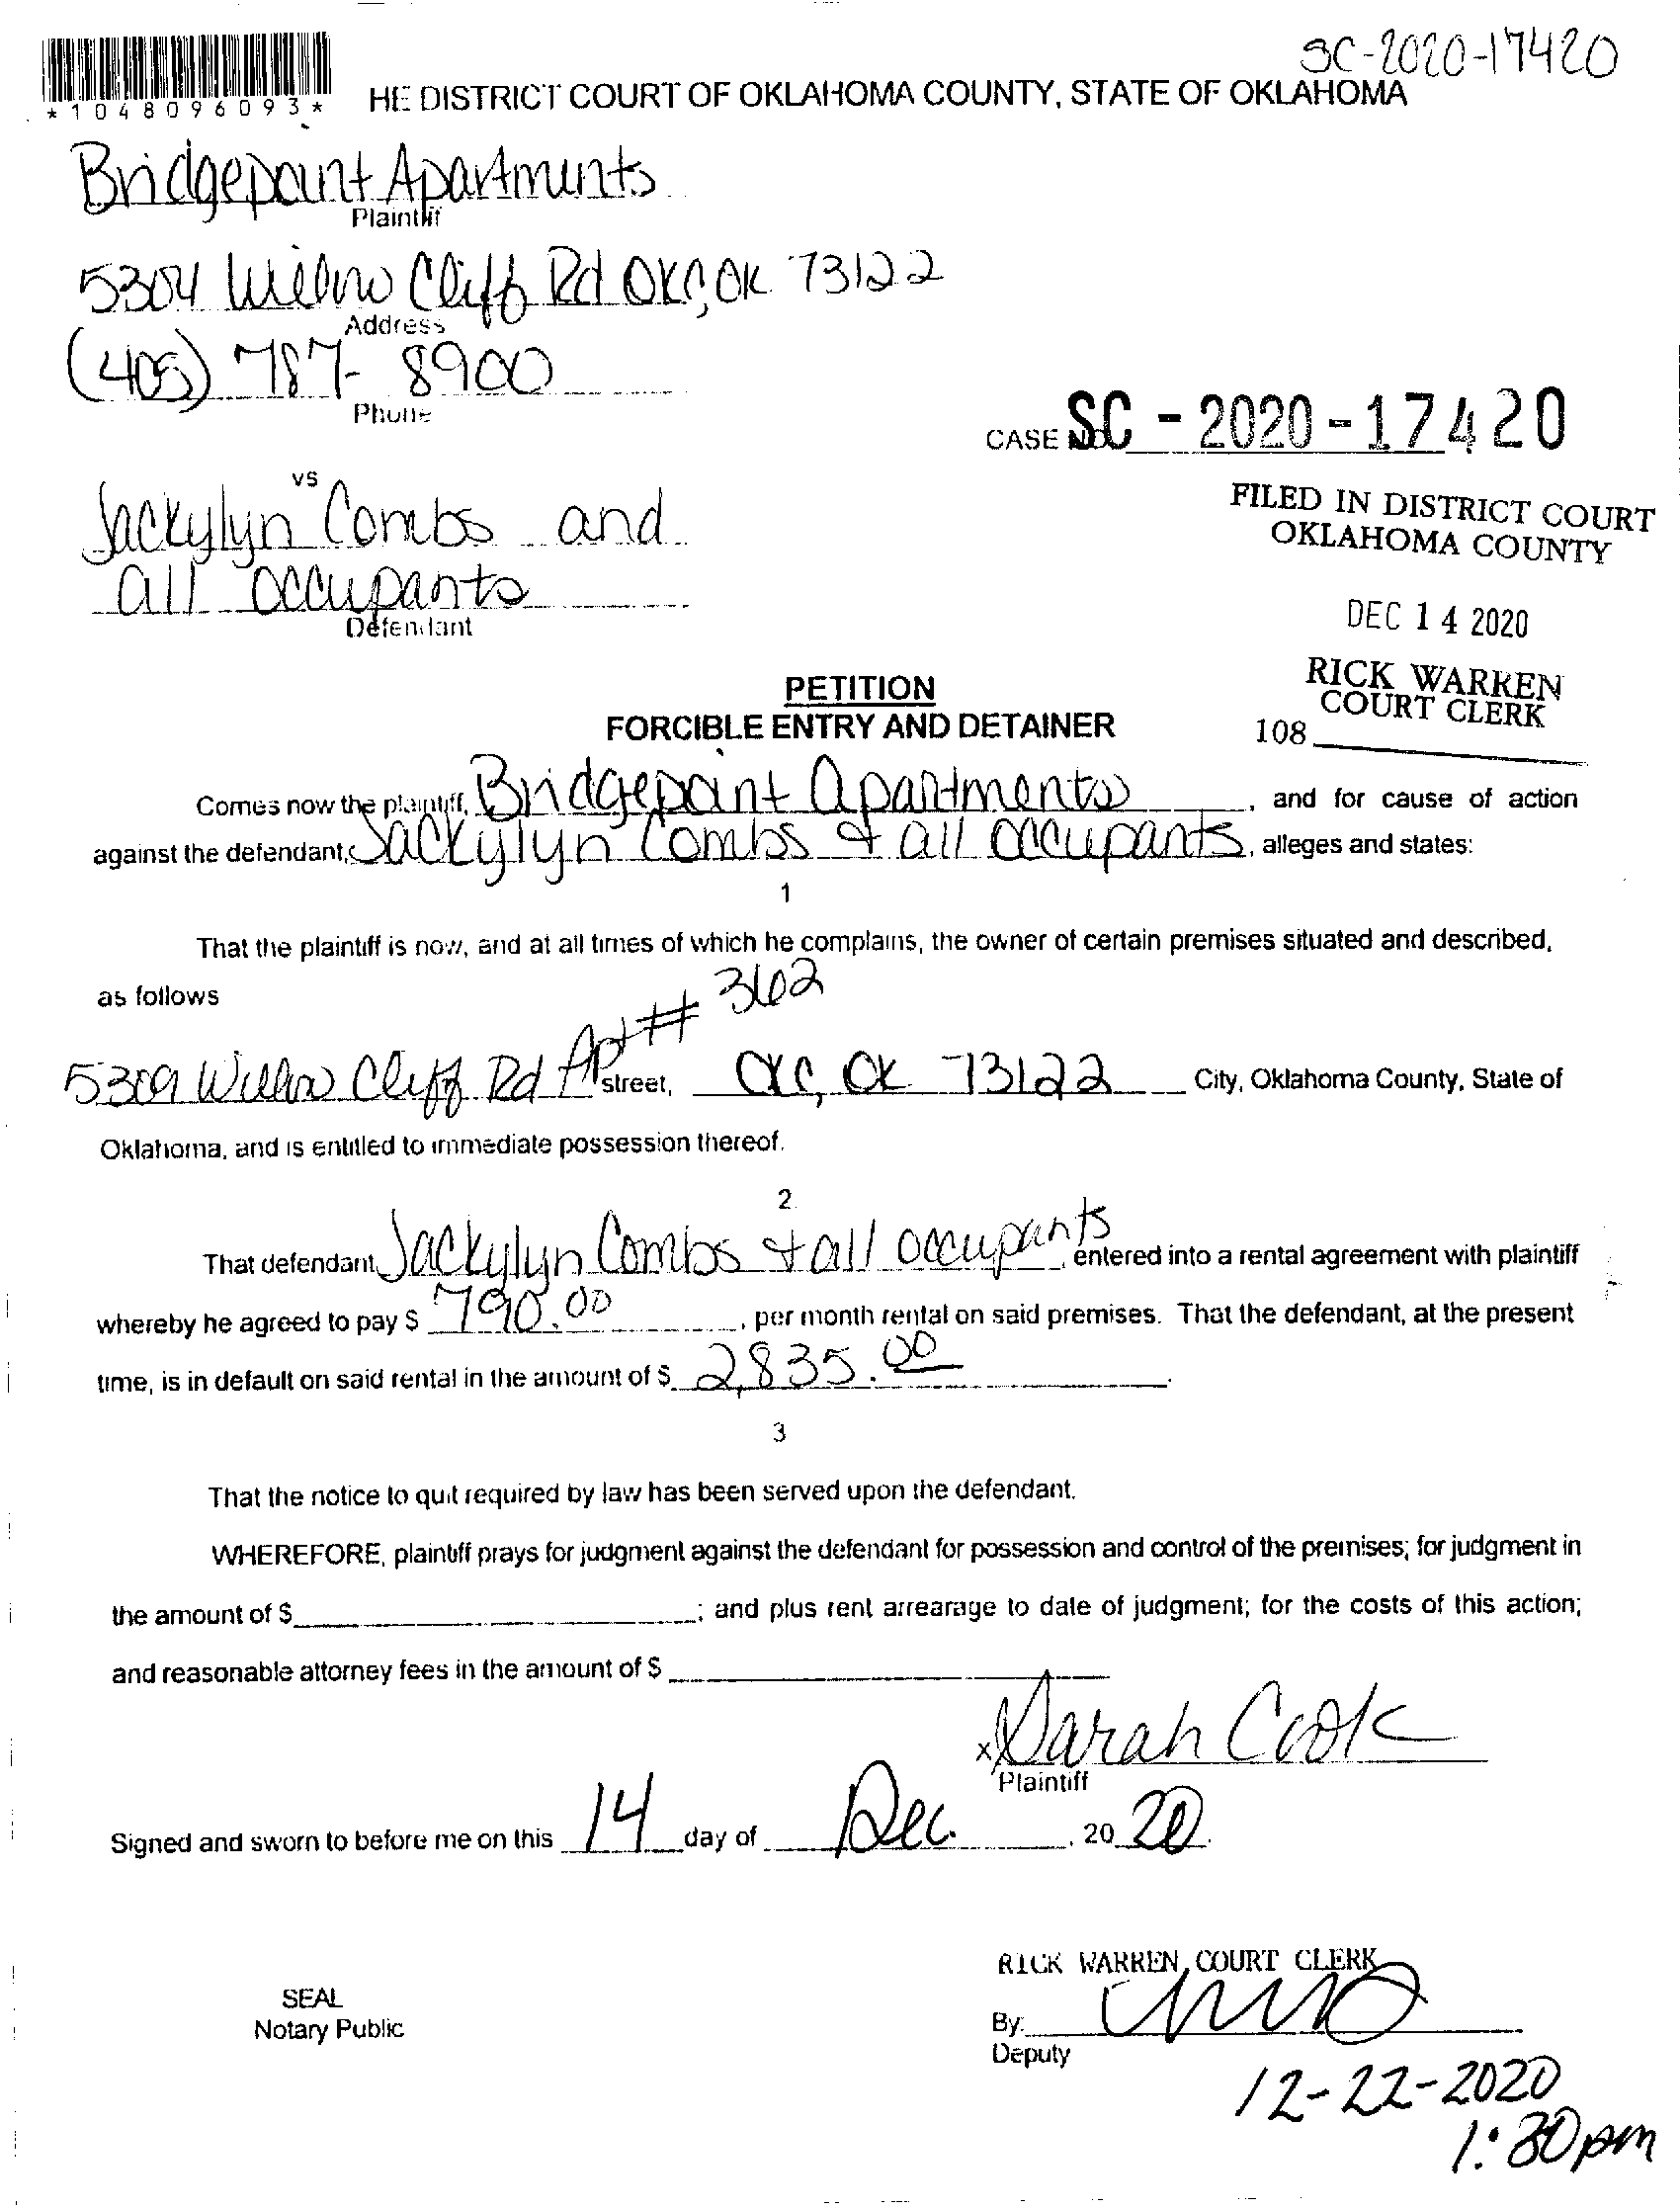 SC-2020-17420
*1048096093*
HE DISTRICT COURT OF OKLAHOMA COUNTY, STATE OF OKLAHOMA
Bridgepoint Apartments
Plaintiff
5304 Willow Cliff Rd OKC, OK 73122
Address
(405) 787-8900
Phone
CASE NO. SC-2020-17420
vs
Jackylyn Combs and
all occupants
Defendant
FILED IN DISTRICT COURT
OKLAHOMA COUNTY
DEC 14 2020
RICK WARREN
COURT CLERK
108
PETITION
FORCIBLE ENTRY AND DETAINER
Comes now the plaintiff, Bridgepoint Apartments, and for cause of action
against the defendant, Jackylyn Combs & all occupants, alleges and states:
1
That the plaintiff is now, and at all times of which he complains, the owner of certain premises situated and described,
as follows
5309 Willow Cliff Rd Apt# 362 street, OKC, OK 73122 City, Oklahoma County, State of
Oklahoma, and is entitled to immediate possession thereof.
2
That defendant Jackylyn Combs & all occupants, entered into a rental agreement with plaintiff
whereby he agreed to pay $ 790.00, per month rental on said premises. That the defendant, at the present
time, is in default on said rental in the amount of $ 2,835.00.
3
That the notice to quit required by law has been served upon the defendant.
WHEREFORE, plaintiff prays for judgment against the defendant for possession and control of the premises; for judgment in
the amount of $; and plus rent arrearage to date of judgment; for the costs of this action;
and reasonable attorney fees in the amount of $
x Sarah Cook
Plaintiff
Signed and sworn to before me on this 14 day of Dec, 2020.
RICK WARREN, COURT CLERK
SEAL
Notary Public
By:
Deputy
12-22-2020
1:30pm